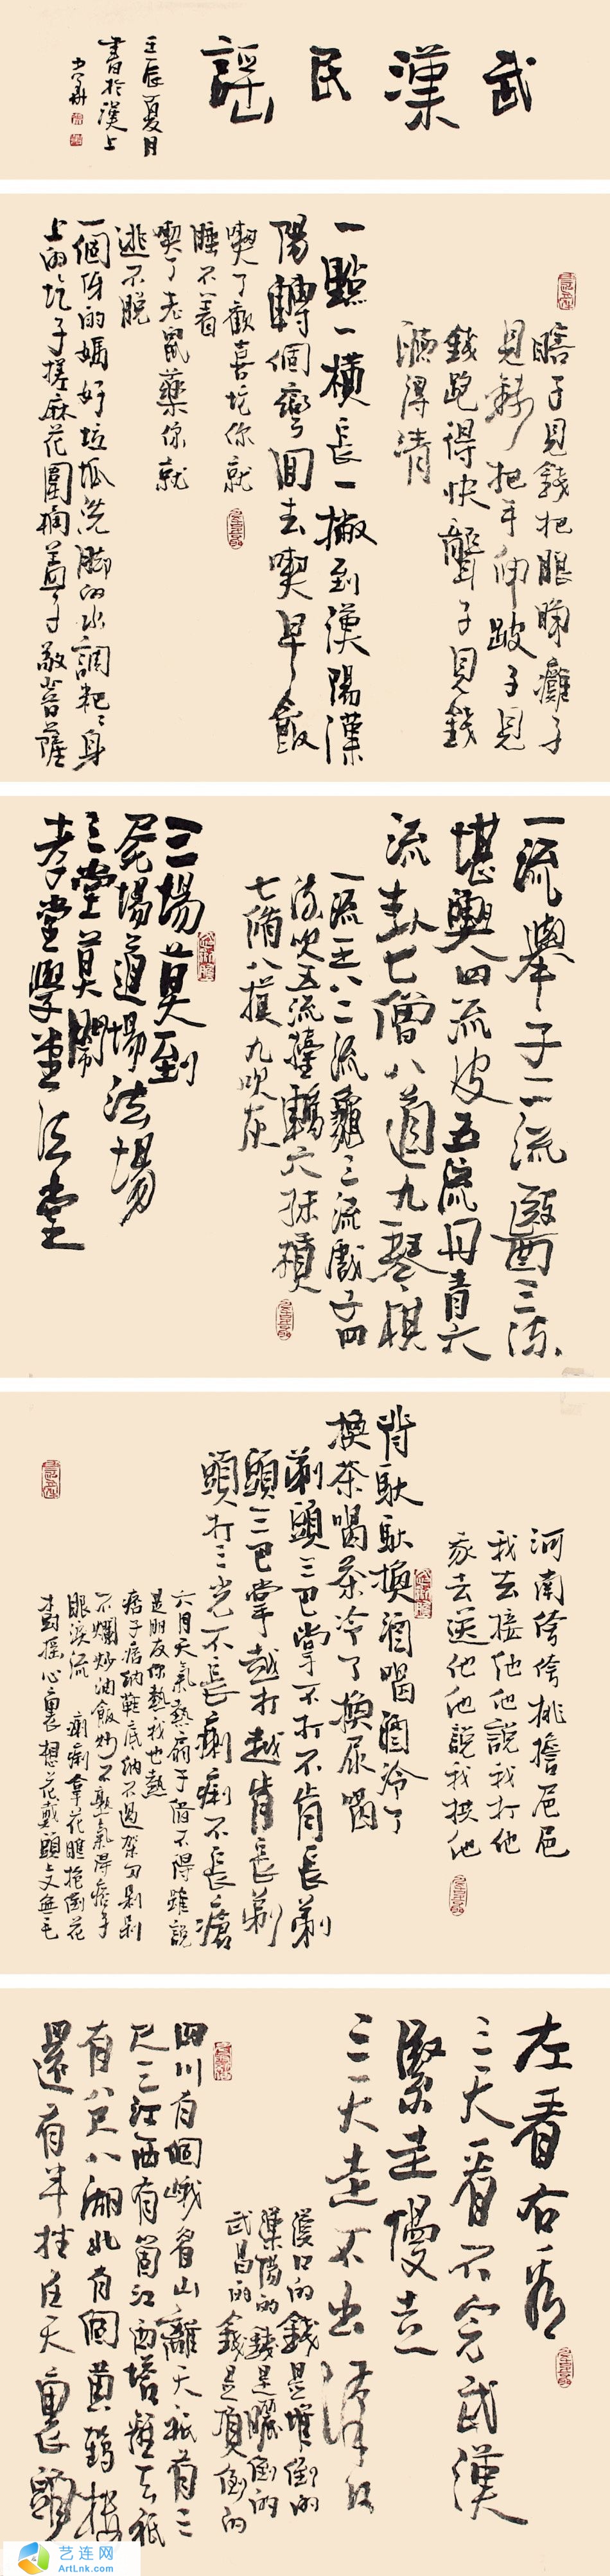 武漢民謠
壬辰夏月
書於漢上
瞎子見錢把眼睜癱子
見錢把手伸跛子見
錢跑得快聾子見錢
聽得清
一點一橫長一撇到漢陽漢
陽轉個彎回去喫早飯
喫了歡喜坨你就
睡不着
喫了老鼠藥你就
逃不脫
一個伢的媽好垃圾洗脚的水調粑粑身
上的圪子搓麻花圍桶蓋子敲菩薩
一流舉子二流醫三流
堪輿四流皮五流丹青六
流卦七僧八道九琴棋
一流王八二流龜三流戲子四
流吹五流
七 八 九吹灰
三場莫到
屍場道場法場
三堂莫鬧
孝堂學堂法堂
河南侉侉挑擔㞎㞎
我去接他他說我打他
我去送他他說我拱他
背馱馱換酒喝酒冷了
換茶喝茶冷了換尿喝
剃頭三巴掌不打不肯長剃
頭三巴掌越打越肯長剃
頭打三光不長瘌痢不長瘡
六月天氣熱扇子借不得雖說
是朋友你熱我也熱
痞子痞納鞋底納不過架刀剁剁
不爛炒油飯炒不熟氣得痞子
眼淚流 瘌痢拿花瞧抱倒花
樹搖心裏想花戴頭上又無毛
左看右看
三天看不完武漢
緊走慢走
三天走不出漢口
漢口的錢是堆倒的
漢陽的錢是曬倒的
武昌的錢是頂倒的
四川有個峨眉山離天衹有三
尺三江西有箇江西塔離天衹
有八尺八湖北有個黃鶴樓
還有半拄在天裏頭
艺连网
ArtLnk.com